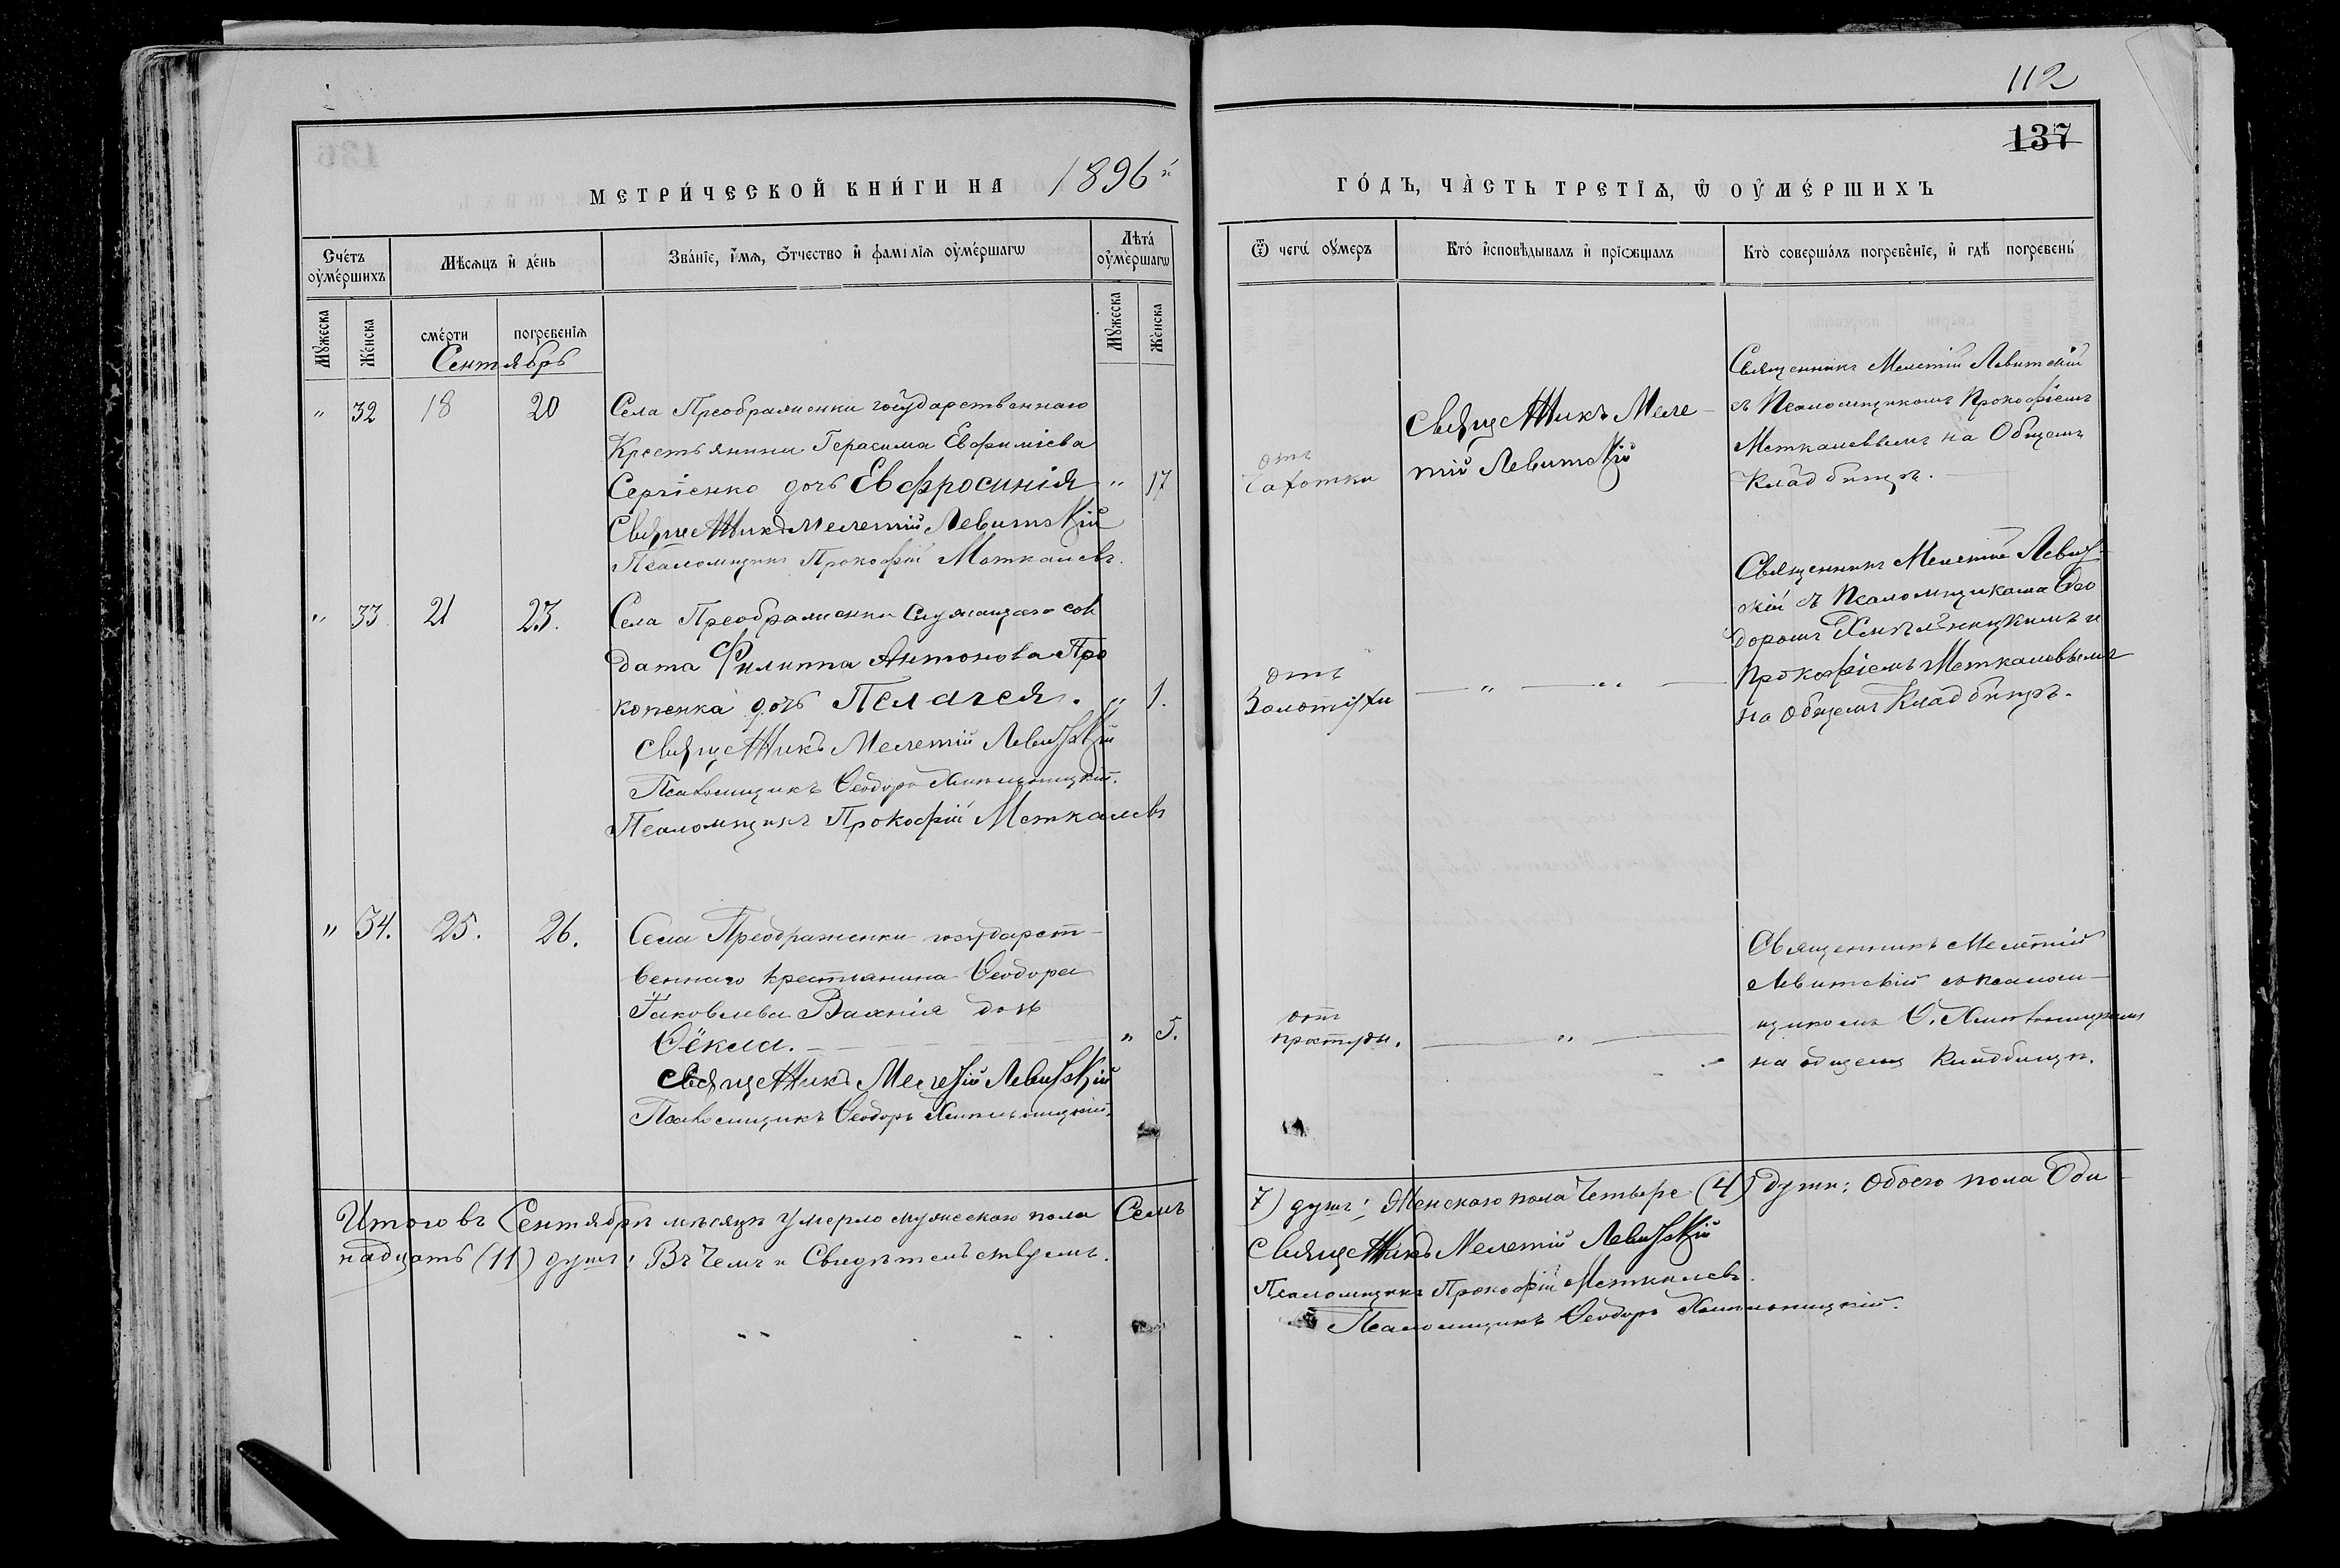 112
137
МЕТРИ́ЧЕСКОЙ КНИ́ГИ НА 1896й
ГО́ДЪ, ЧА̀СТЬ ТРЕТІѦ, Ѿ ОУ҆МЕ́РШИХЪ
Сче́тъ оу҆ме́ршихъ
Мѣ́сѧцъ и҆ де́нь
Зва́нїе, и҆́мѧ, ѻ҆́тчество и҆ фамі́лїѧ оу҆ме́ршагѡ
Лѣта́ оу҆ме́ршагѡ
Ѿ чегѡ̀ оу҆́меръ
Кто̀ и҆сповѣ́дывалъ и҆ прїѡбща́лъ
Кто̀ соверша́лъ погребе́нїе, и҆ гдѣ̀ погребены̀
Мꙋ́жеска
Же́нска
сме́рти
погребе́нїѧ
Мꙋ́жеска
Же́нска
Сентябрь
" 32 18 20
Села Преображенки государственнаго
Крестьянина Герасима Евфиміева
Сергіенко дочь Евфросинія " 17
Священникъ Мелетій Левитскій
Псаломщикъ Прокофій Меткалевъ.
отъ
Чахотки
Священникъ Меле-
тій Левитскій
Священникъ Мелетій Левитскій
съ Псаломщикомъ Прокофіемъ
Меткалевымъ на Общемъ
Кладбищѣ.
" 33 21 23.
Села Преображенки Служащаго сол
дата Филиппа Антонова Про
копенка дочь Пелагея. " 1.
Священникъ Мелетій Левитскій
Псаломщикъ Ѳеодоръ Хмельницкій.
Псаломщикъ Прокофій Меткалевъ
отъ
Золотухи
— " — " —
Священникъ Мелетій Левит-
скій съ Псаломщиками Ѳео
доромъ Хмѣльницкимъ и
Прокофіемъ Меткалевымъ
на Общемъ Кладбищѣ.
" 34. 25. 26.
Села Преображенки государст-
веннаго крестьянина Ѳеодора
Іаковлева Вахнія дочь
Ѳёкла. " 5.
Священникъ Мелетій Левитскій
Псаломщикъ Ѳеодоръ Хмельницкій.
отъ
простуды.
— " —
Священникъ Мелетій
Левитскій съ псалом-
щикомъ Ѳ. Хмельницкимъ
на общемъ Кладбищѣ.
Итого въ Сентябрѣ мѣсяцѣ умерло мужескаго пола Семь
7) душъ; Женскаго пола Четыре (4) души; Обоего пола Оди-
надцать (11) душъ; Въ Чемъ и Свидѣтельствуемъ.
Священникъ Мелетій Левитскій
Псаломщикъ Прокофій Меткалевъ.
Псаломщикъ Ѳеодоръ Хмельницкій.